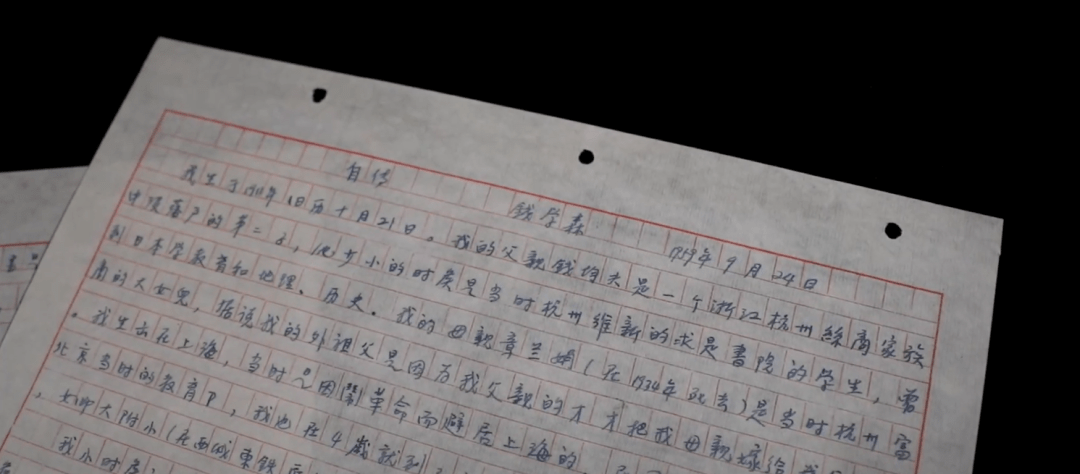 自传 钱学森 1959年9月24日
我生于1911年旧历十月21日。我的父親钱均夫是一个浙江杭州絲商家族
中没落户的第二子,他少小的时候是当时杭州维新的求是書院的学生,曾
到日本学教育和地理、历史。我的母親章兰娟(在1934年死去)是当时杭州富
商的大女兒,据说我的外祖父是因为我父親的才,才把我母親嫁给
。我生出在上海,当时是因闹革命而避居上海的
北京当时的教育P,我也在4歲就到
,女师大附小(在西城東铁
我小时